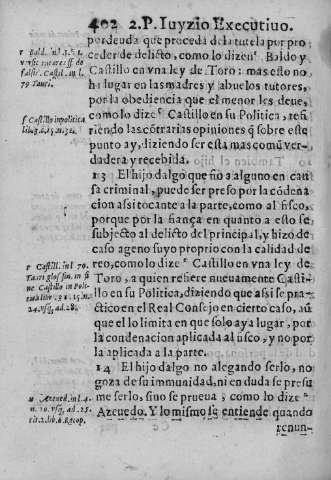 402 2.P. Iuyzio Executiuo.
por deuda que proceda de la tutela por pro
ceder de delicto, como lo dizen Baldo y
Castillo en vna ley de Toro: mas esto no
ha lugar en las madres y abuelos tutores,
por la obediencia que el menor les deue,
como lo dize Castillo en su Politica, refi
riendo las cõtrarias opiniones q̃ sobre este
punto ay, diziendo ser esta mas comũ ver-
dadera y recebida.
13 El hijo dalgo que fio a alguno en cau
sa criminal, puede ser preso por la cõdena
cion assi tocante a la parte, como al fisco,
porque por la fiança en quanto a esto se
subjecto al delicto del principal, y hizo de
caso ageno suyo proprio con la calidad de
reo, como lo dize Castillo en vna ley de
Toro, a quien refiere nueuamente Casti-
llo en su Politica, diziendo que assi se pra-
ctico en el Real Consejo en cierto caso, aũ
que el lo limita en que solo aya lugar, por
la condenacion aplicada al fisco, y no por
la aplicada a la parte.
14 El hijo dalgo no alegando serlo, no
goza de su immunidad, ni en duda se presu
me serlo, sino se prueua; como lo dize
Azeuedo. Y lo mismo se entiende quando
renun-
r Bald. in l. 1.
falsis. Castil. in l.
79 Tauri.
s Castillo in politica
lib. 3. c. 15. n. 32.
t Castill. in l. 79.
Tauri glos. fin. in fi
ne Castillo in Poli-
24. vsq; ad. 28.
u Azeued. in l. 4.
n. 20. vsq; ad. 25.
tit. 2. lib. 6. Recop.